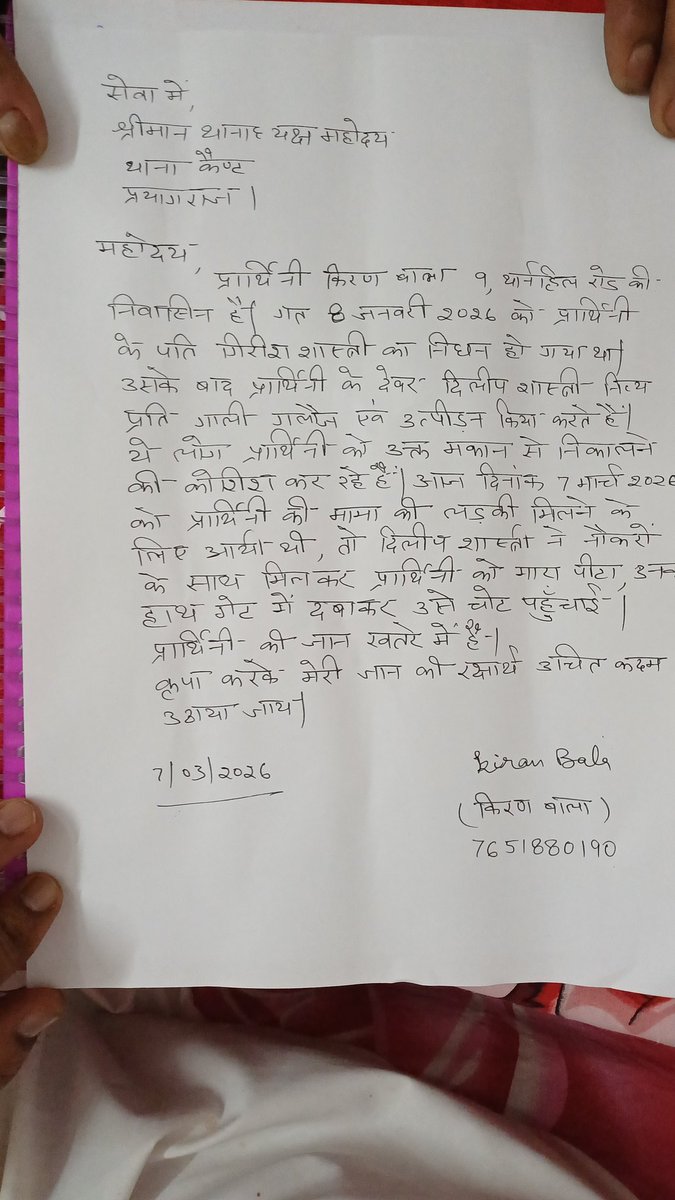 सेवा में,
श्रीमान थानाध्यक्ष महोदय
थाना कैण्ट
प्रयागराज।
महोदय,
प्रार्थिनी किरण बाला १, थार्नहिल रोड की
निवासिन है। गत 8 जनवरी २०२६ को प्रार्थिनी
के पति गिरीश शास्त्री का निधन हो गया था।
उसके बाद प्रार्थिनी के देवर दिलीप शास्त्री नित्य
प्रति गाली गलौज एवं उत्पीड़न किया करते हैं।
ये लोग प्रार्थिनी को उक्त मकान से निकालने
की कोशिश कर रहे हैं। आज दिनांक 7 मार्च २०२६
को प्रार्थिनी की मामा की लड़की मिलने के
लिए आयी थी, तो दिलीप शास्त्री ने नौकरों
के साथ मिलकर प्रार्थिनी को मारा पीटा,
हाथ गेट में दबाकर उसे चोट पहुँचाई।
प्रार्थिनी की जान खतरे में है।
कृपा करके मेरी जान की रक्षार्थ उचित कदम
उठाया जाय।
7/03/२०२६
Kiran Bala
(किरण बाला)
7651880190